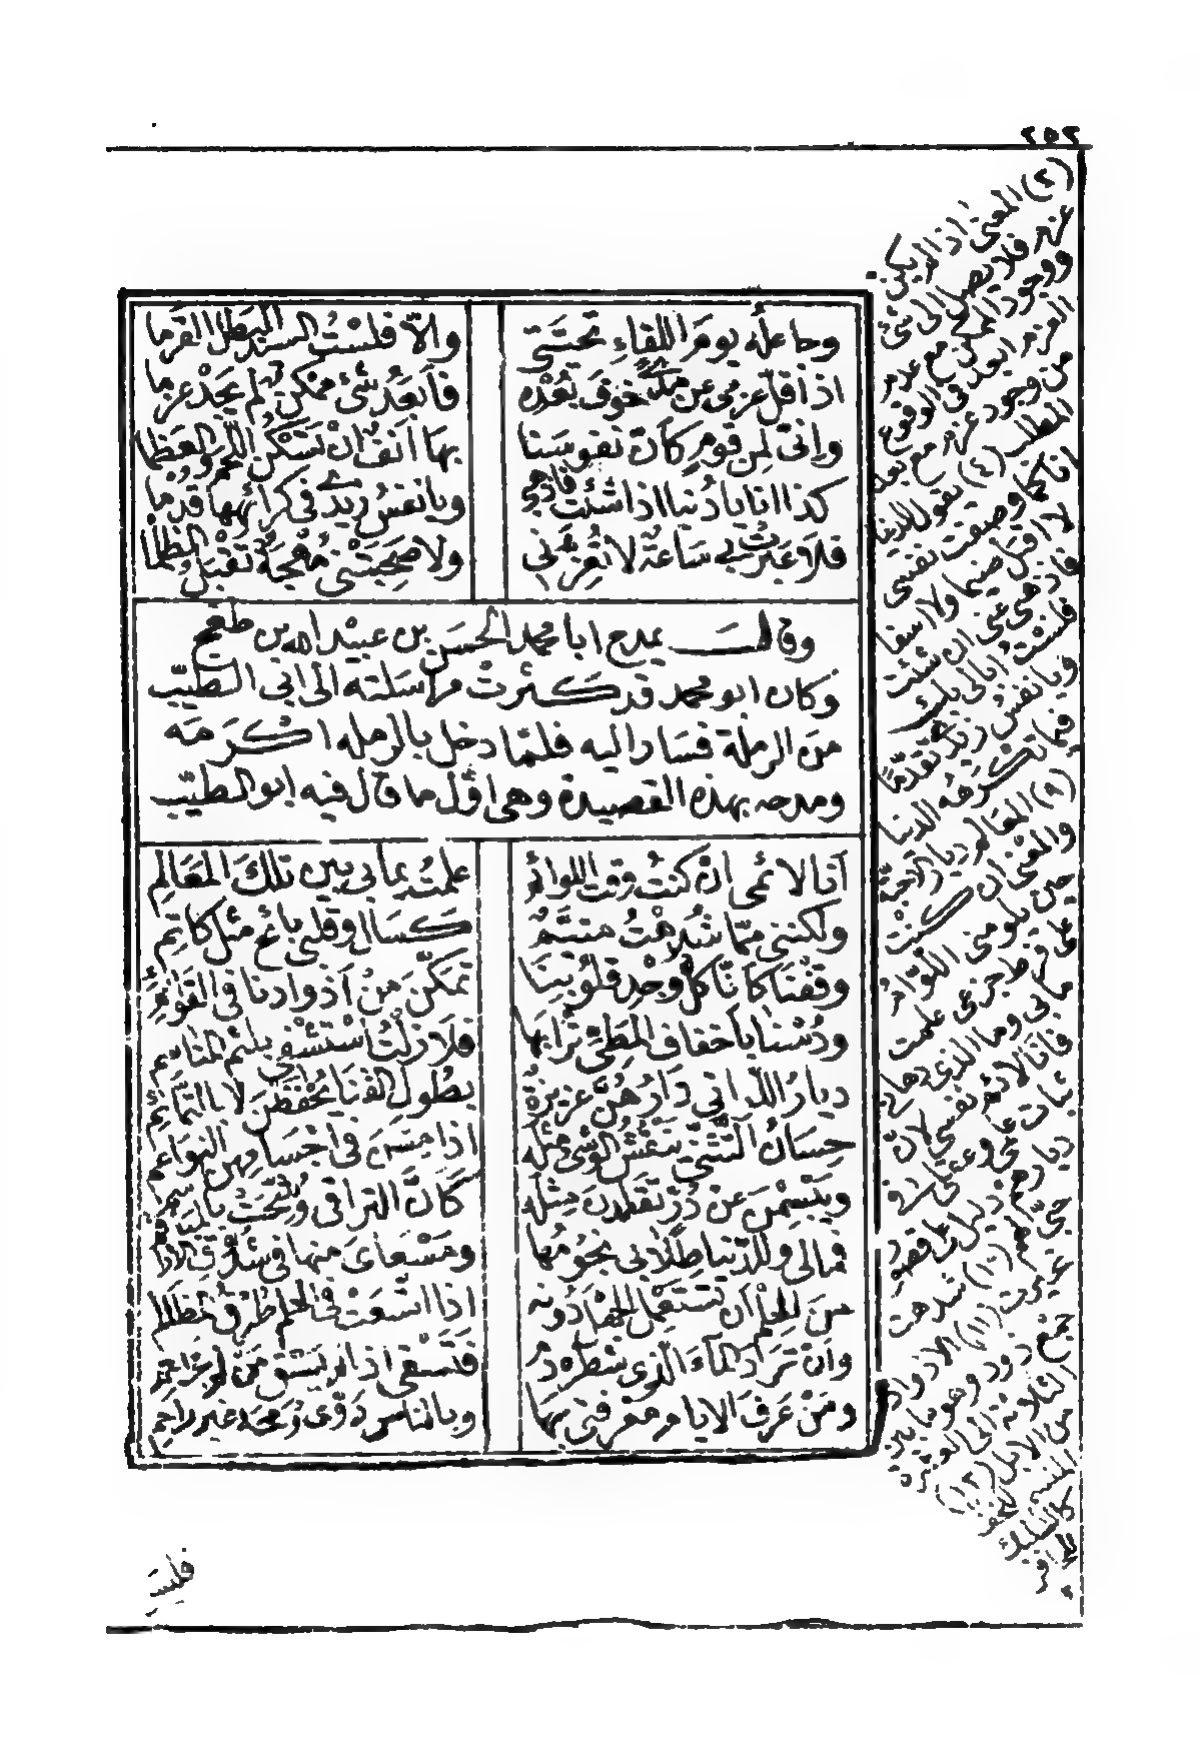 ٢٥٢
وجاعله يومَ اللقاءِ تحيّتي    والّا فلستُ السيّد البطل القَرما
اذا قلّ عزمي عن مدًى خوفَ بُعْدِه    فأبعَدُ شئٍ ممكنٌ لم يَجدْ عزما
وإنّي لمن قومٍ كأنّ نفوسنا    بها أنَفٌ انْ تسْكن اللحمَ والعَظما
كذا انا يا دُنيا اذا شئتِ فاذهبي    ويا نفسُ زيدي في كرائهها قدما
فلا عبرتْ بي ساعةٌ لا تُعزّني    ولا صَحِبَتْني مُهْجةٌ تقبلُ الظلما
وقال يمدح ابا محمد الحسَن بن عبيد الله بن طغج
وكان ابو محمد قد كثرتْ مراسلته الى ابي الطيّب
منَ الرملة فسار اليه فلمّا دخل بالرمله اكرَمَه
ومدحه بهذه القصيدة وهي اوّل ما قال فيه ابو الطيّب
أنا لائمي انْ كنتُ وقت اللوائمِ    علمتُ بما بي بين تلكَ المَعَالمِ
ولكنني ممّا شُدِهْتُ متيّمٌ    كَسَالٍ وقلبي بائحٌ مثل كاتمِ
وقفْنَا كأنّا كلُّ وجْدِ قلُوبنَا    تمكّنَ مِنْ أذوادنا في القوائمِ
ودُسْنا بأخفاف المَطيِّ ترابَها    فلَا زلْتُ استشْفي بلثم المناسمِ
ديارُ اللّواتي دَارُهُنَّ عزيزةٌ    بطُولِ القنَا يُحْفَظنَ لا بالتمَائمِ
حِسَانُ التّثنّي يَنْقُشُ الوَشْيُ مثلَه    اذا مِسْنَ في اجْسَامِهنّ النّواعمِ
ويَبْسِمْنَ عن دُرٍّ تقلّدنَ مثلَه    كأنّ التراقي وُشّحَتْ بالمباسمِ
فمالي وللدّنيا طِلابي نجُومُها    ومَسْعَايَ منها في شُدُوقِ الاراقم
منَ الحلْمِ أن تستعملَ الجهْلَ دُونه    اذا اتّسَعَتْ في الحلمِ طُرقُ المَظالمِ
وأنْ تَرِدَ الماءَ الذي شطْرُه دمٌ    فتَسقي اذا لم يُسْقَ مَنْ لم يُزَاحِمِ
ومَنْ عَرفَ الايامَ معرفتي بها    وبالناسِ روّى رُمحَه غير راحمِ
(٢) المعنى اذا لم يكن
عزم فلا يصل الى شئ
ووجود الممكن مع عدم
العزم ابعد في الوقوع
من وجود عزم مع بعد
المطلب (٤) يقول للدنيا
انا كما وصفت نفسي
لا اقبل ضيما ولا اسفا
فاذهبي عني ان شئت
فلستُ ابالي بك
ويا نفسُ زيدي تقدّمًا
فيما تكرهه الدنيا
(٩) المعالم ديار الاحبّة
والمعنى ان كنتْ
حين يلومني اللوّام
على فرط جزعي علمت
ما بي وما الذي دهاني
فانا لائم نفسي لانّ
ديارهم
(١٠) شدهت
(١١) الاذواد
جمع ذود وهو ما بين
الثلاثة الى العشرة
من الابل (١٢)
فليسَ